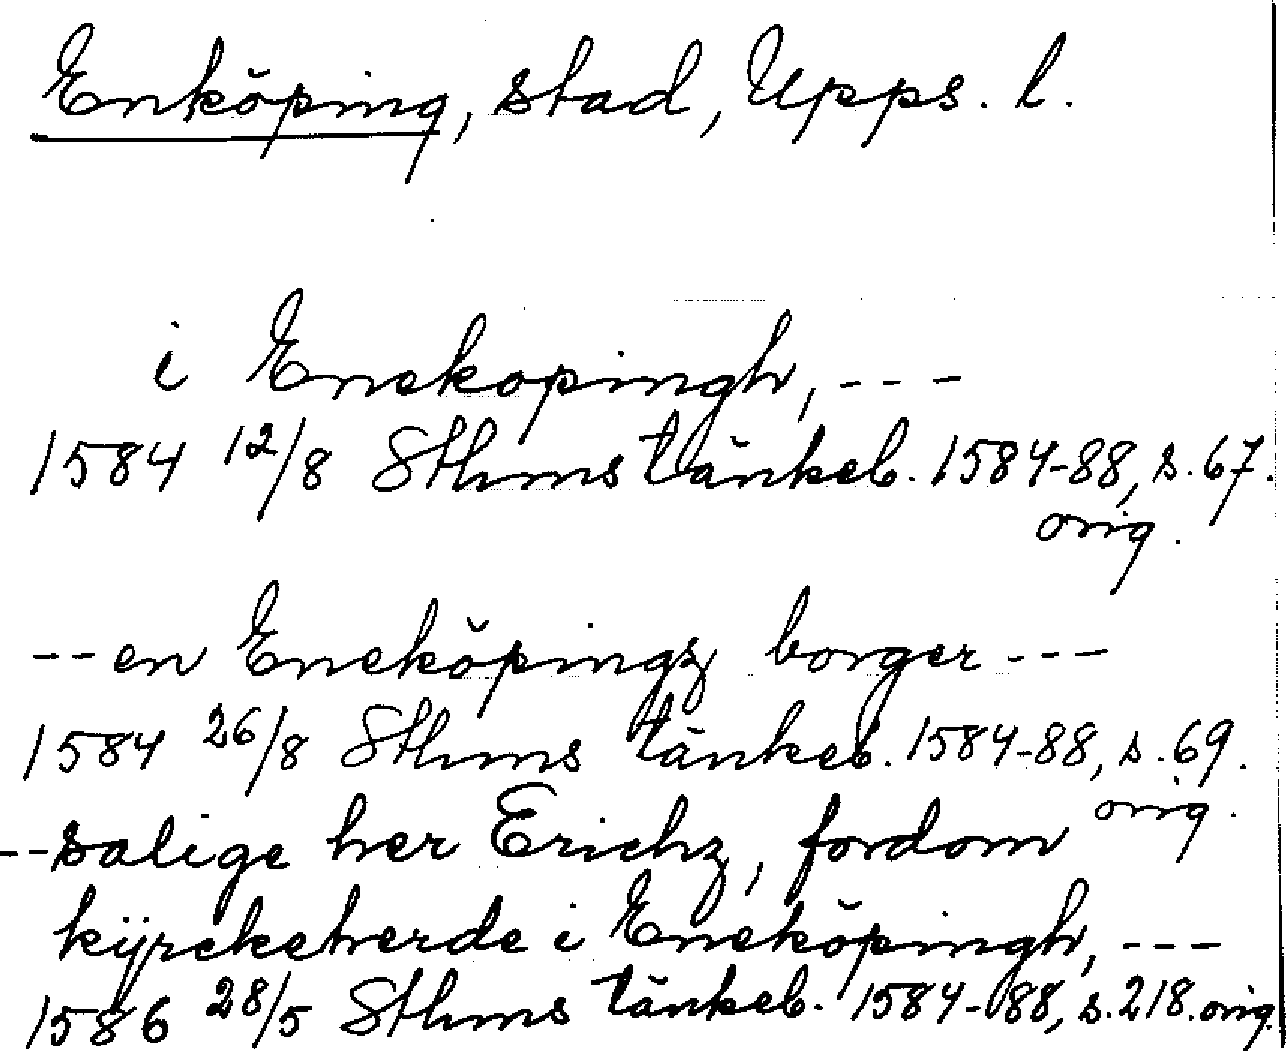 Enköping, stad, Upps. l.
i Enekopingh, ---
1584 12/8 Sthms tänkeb. 1584-88, s. 67.
orig.
-- en Eneköpingz borger ---
1584 26/8 Sthms tänkeb. 1584-88, s. 69.
orig.
-- salige her Erichz, fordom
kÿrckeherde i Eneköpingh, ---
1586 28/5 Sthms tänkeb. 1584-88, s. 218. orig.